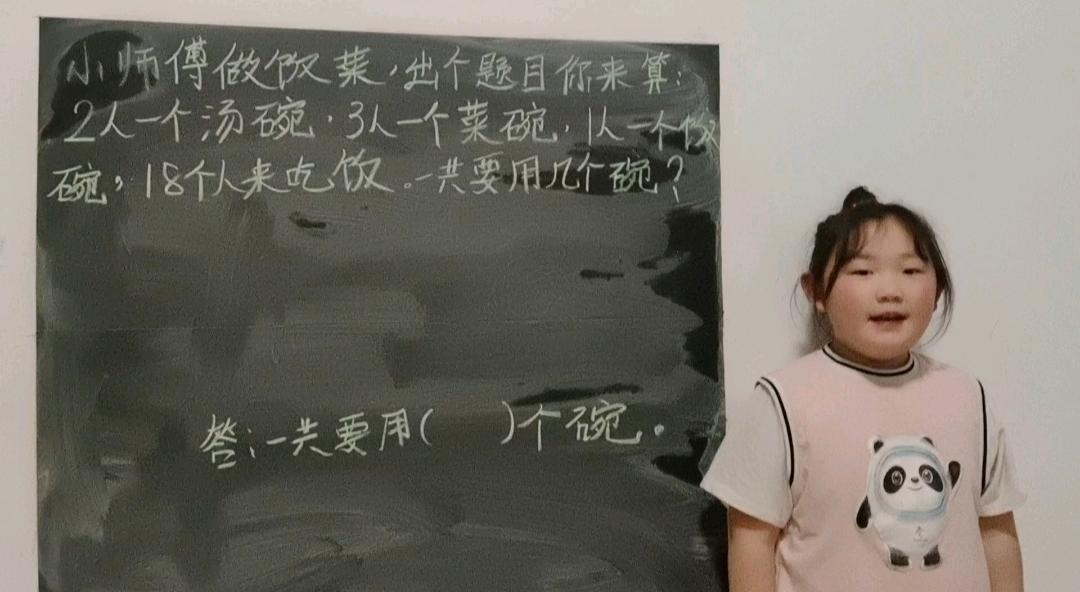 小师傅做饭菜,出个题目你来算:
2人一个汤碗,3人一个菜碗,1人一个饭
碗,18个人来吃饭。一共要用几个碗?
答:一共要用(    )个碗.